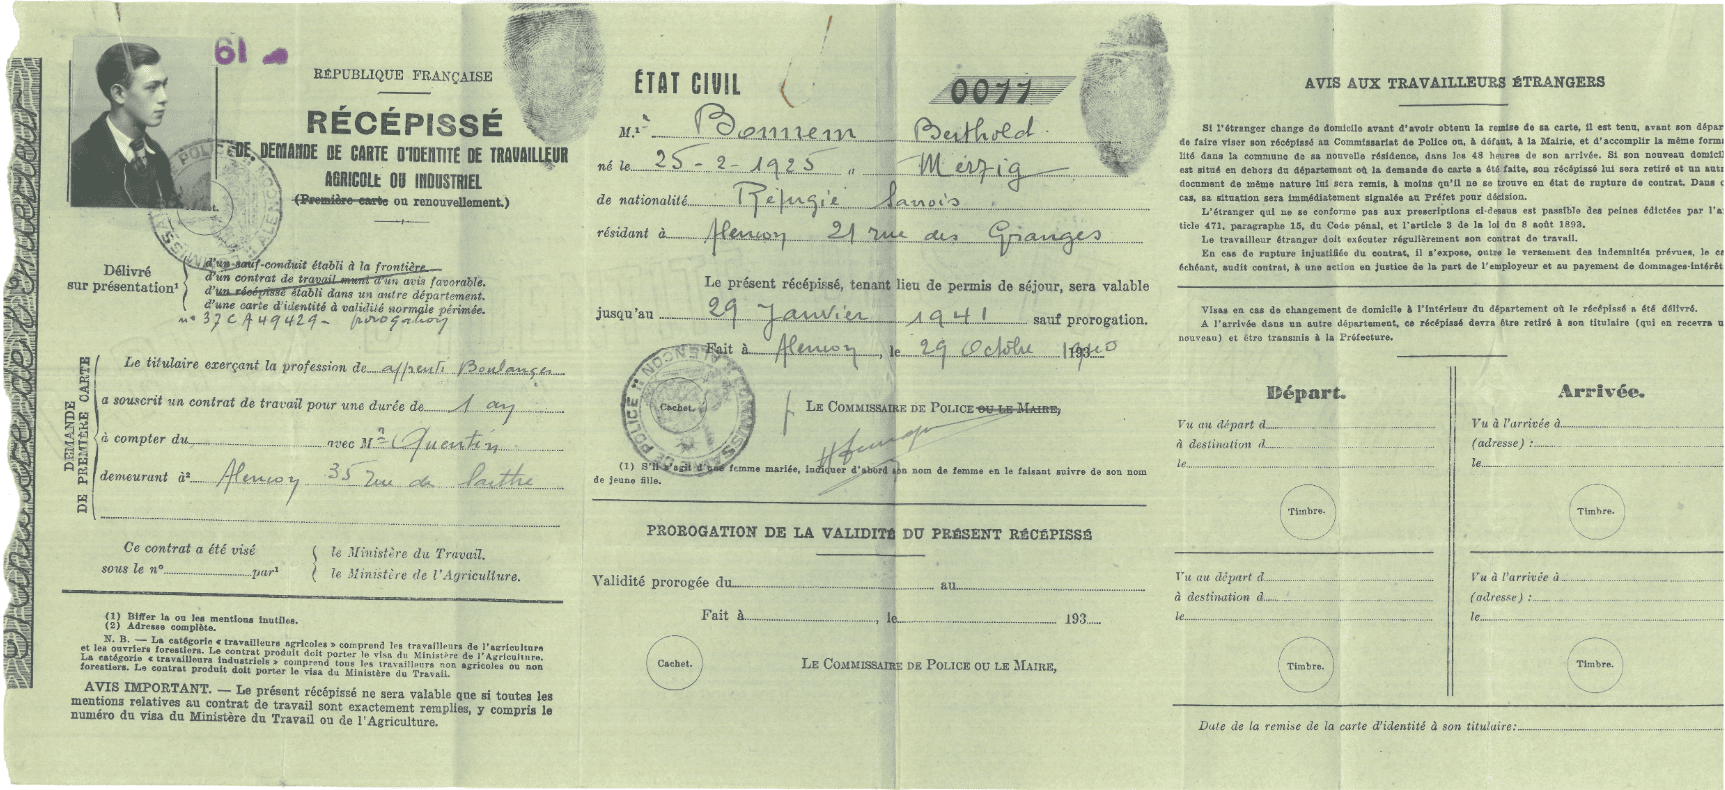 61
RÉPUBLIQUE FRANÇAISE
RÉCÉPISSÉ
DE DEMANDE DE CARTE D'IDENTITÉ DE TRAVAILLEUR
AGRICOLE OU INDUSTRIEL
(Première carte ou renouvellement.)
Délivré
sur présentation¹
d'un sauf-conduit établi à la frontière
d'un contrat de travail muni d'un avis favorable.
d'un récépissé établi dans un autre département.
d'une carte d'identité à validité normale périmée.
n° 37CA49429 - prorogation
DEMANDE
DE PREMIÈRE CARTE
Le titulaire exerçant la profession de apprenti Boulanger
a souscrit un contrat de travail pour une durée de 1 an
à compter du avec Mr Quentin
demeurant à² Alençon 35 rue de Sarthe
Ce contrat a été visé
sous le n° par¹
le Ministère du Travail.
le Ministère de l'Agriculture.
(1) Biffer la ou les mentions inutiles.
(2) Adresse complète.
N. B. — La catégorie « travailleurs agricoles » comprend les travailleurs de l'agriculture
et les ouvriers forestiers. Le contrat produit doit porter le visa du Ministère de l'Agriculture.
La catégorie « travailleurs industriels » comprend tous les travailleurs non agricoles ou non
forestiers. Le contrat produit doit porter le visa du Ministère du Travail.
AVIS IMPORTANT. — Le présent récépissé ne sera valable que si toutes les
mentions relatives au contrat de travail sont exactement remplies, y compris le
numéro du visa du Ministère du Travail ou de l'Agriculture.
ÉTAT CIVIL
0077
M.r Bonnem Berthold
né le 25-2-1925 " Mérzig
de nationalité Réfugié Sarrois
résidant à Alençon 21 rue des Granges
Le présent récépissé, tenant lieu de permis de séjour, sera valable
jusqu'au 29 Janvier 1941 sauf prorogation.
Fait à Alençon, le 29 Octobre 1940
COMMISSAIRE DE POLICE ALENÇON
Cachet.
LE COMMISSAIRE DE POLICE OU LE MAIRE,
(1) S'il s'agit d'une femme mariée, indiquer d'abord son nom de femme en le faisant suivre de son nom
de jeune fille.
PROROGATION DE LA VALIDITÉ DU PRÉSENT RÉCÉPISSÉ
Validité prorogée du au
Fait à , le 193
Cachet.
LE COMMISSAIRE DE POLICE OU LE MAIRE,
AVIS AUX TRAVAILLEURS ÉTRANGERS
Si l'étranger change de domicile avant d'avoir obtenu la remise de sa carte, il est tenu, avant son dépar
de faire viser son récépissé au Commissariat de Police ou, à défaut, à la Mairie, et d'accomplir la même forma
lité dans la commune de sa nouvelle résidence, dans les 48 heures de son arrivée. Si son nouveau domicil
est situé en dehors du département où la demande de carte a été faite, son récépissé lui sera retiré et un autr
document de même nature lui sera remis, à moins qu'il ne se trouve en état de rupture de contrat. Dans c
cas, sa situation sera immédiatement signalée au Préfet pour décision.
L'étranger qui ne se conforme pas aux prescriptions ci-dessus est passible des peines édictées par l'a
ticle 471, paragraphe 15, du Code pénal, et l'article 3 de la loi du 8 août 1893.
Le travailleur étranger doit exécuter régulièrement son contrat de travail.
En cas de rupture injustifiée du contrat, il s'expose, outre le versement des indemnités prévues, le ca
échéant, audit contrat, à une action en justice de la part de l'employeur et au payement de dommages-intérêt
Visas en cas de changement de domicile à l'intérieur du département où le récépissé a été délivré.
A l'arrivée dans un autre département, ce récépissé devra être retiré à son titulaire (qui en recevra u
nouveau) et être transmis à la Préfecture.
Départ.
Vu au départ d
à destination d
le
Timbre.
Vu au départ d
à destination d
le
Timbre.
Arrivée.
Vu à l'arrivée à
(adresse) :
le
Timbre.
Vu à l'arrivée à
(adresse) :
le
Timbre.
Date de la remise de la carte d'identité à son titulaire: